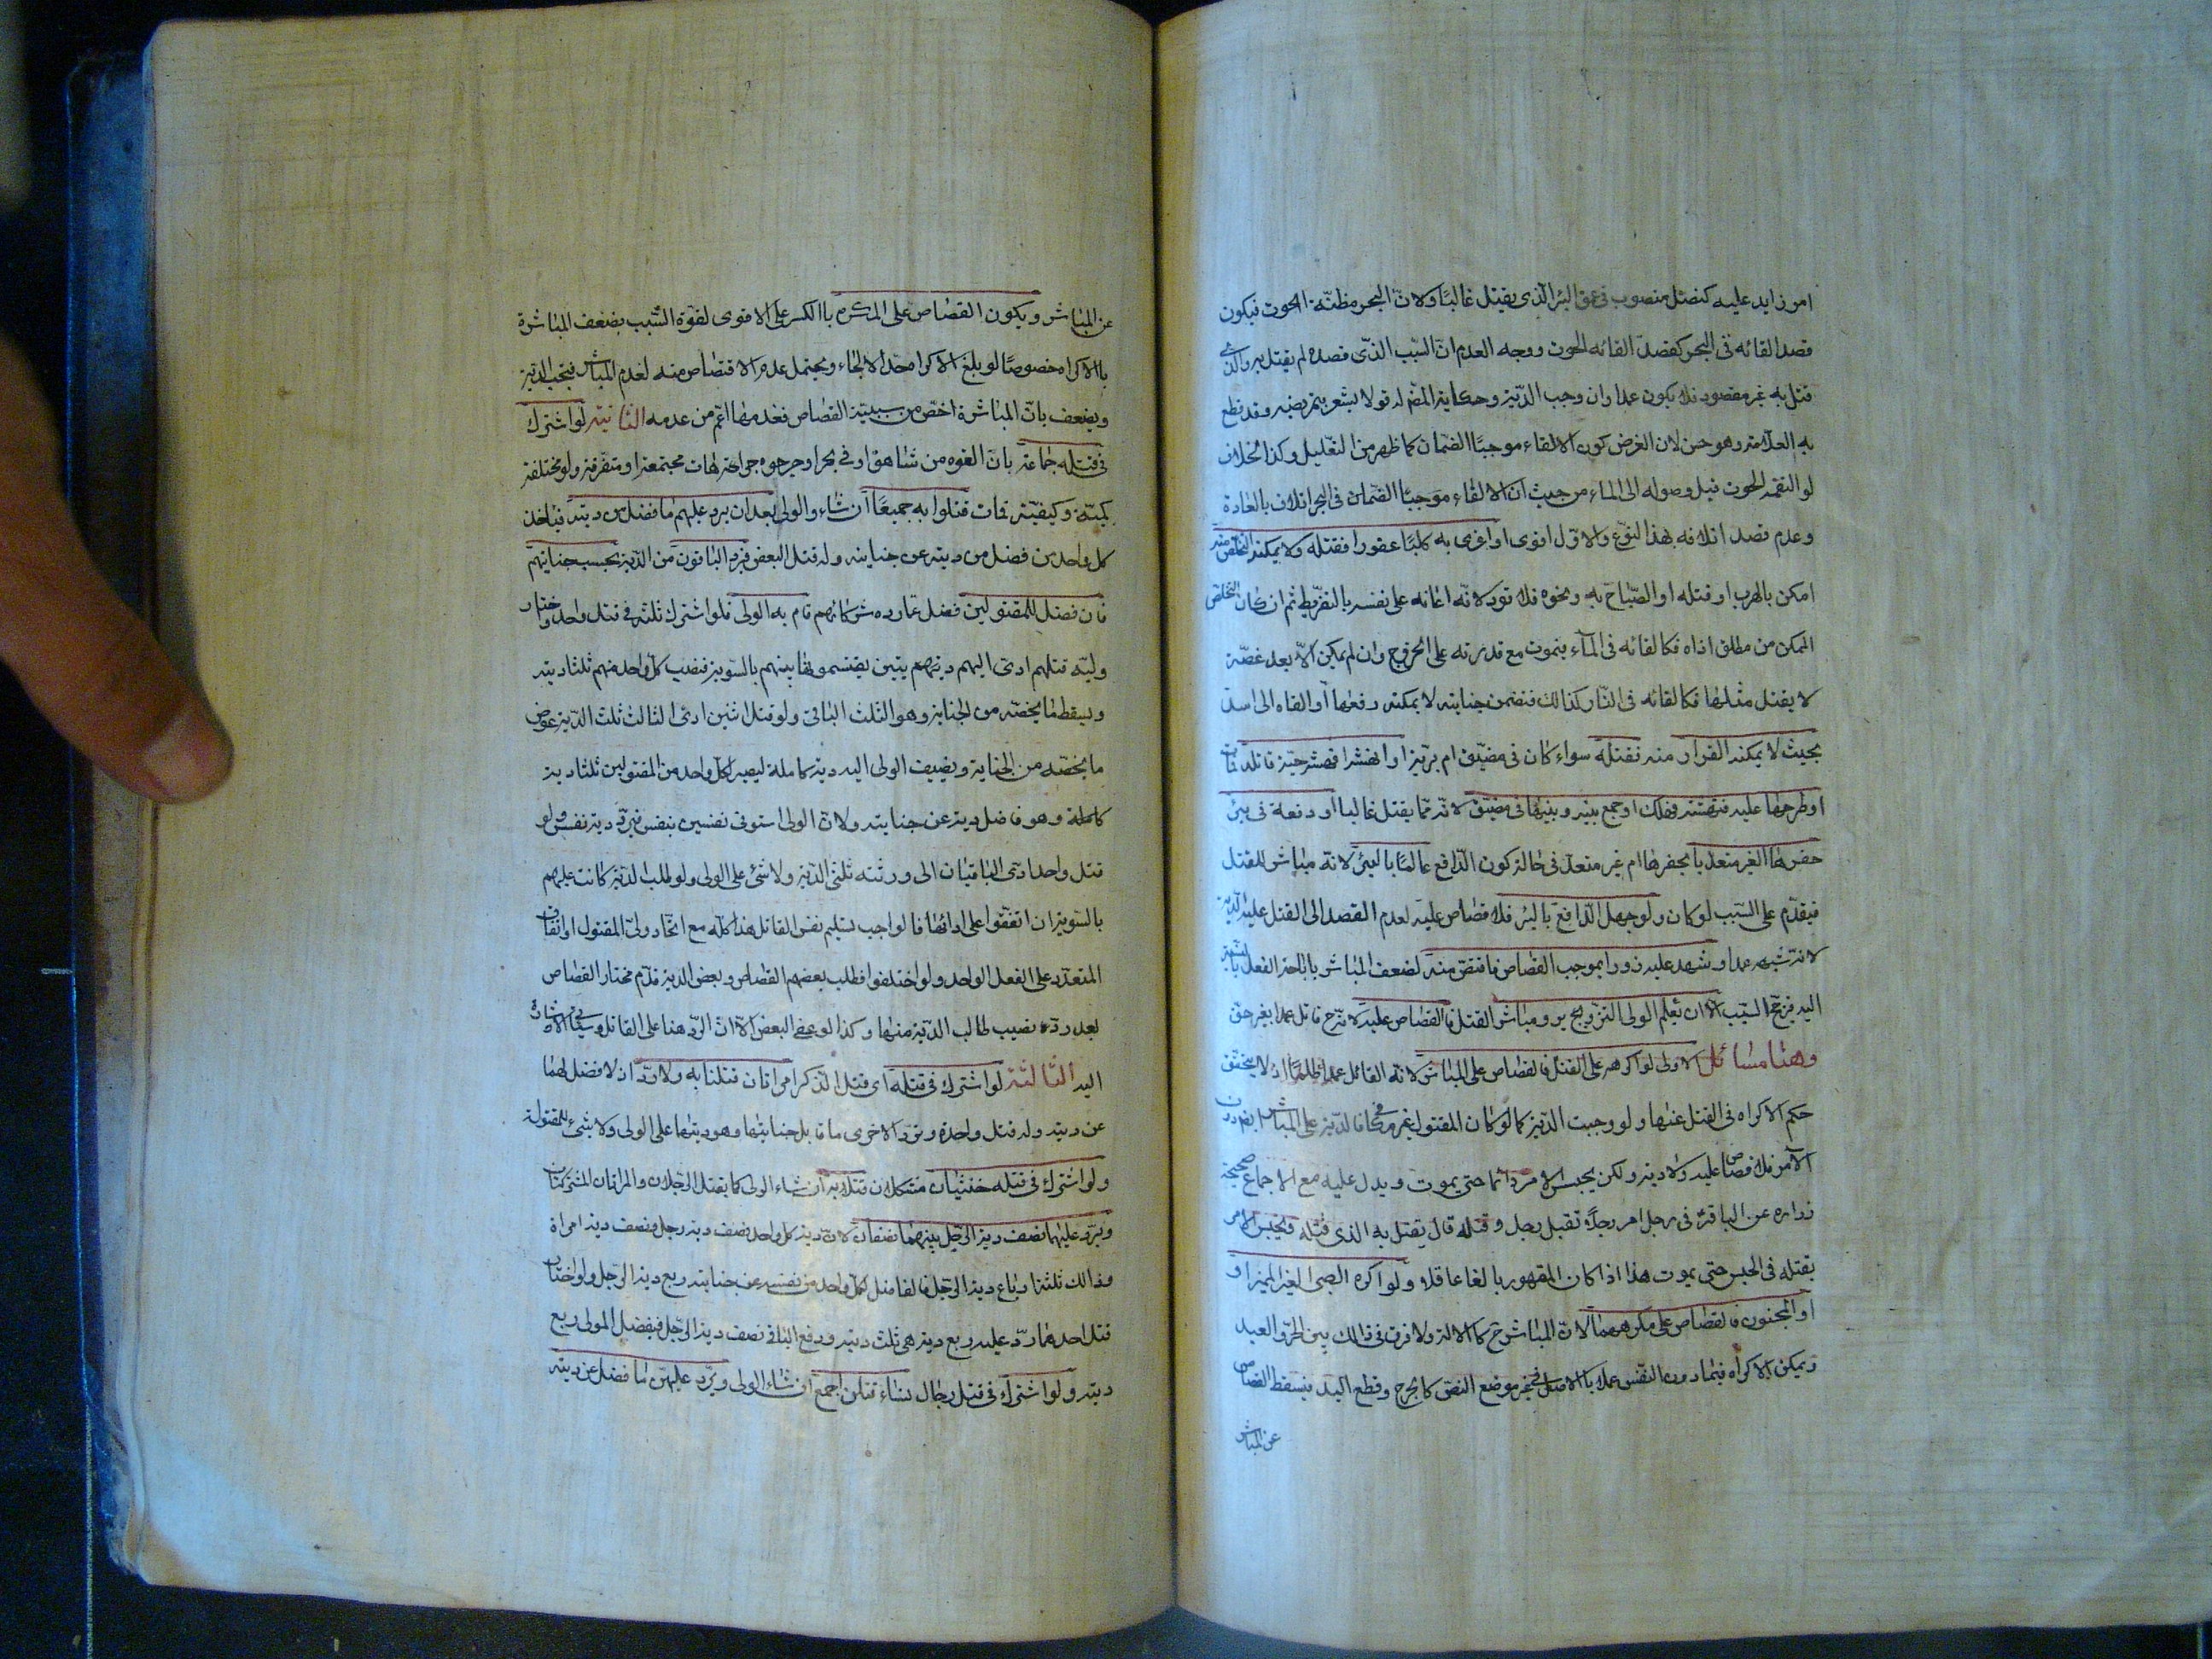 امر زايد عليه كنصل منصوب فى عمق البئر الّذى يقتل غالبًا ولانّ البحر مظنّة الحوت فيكون
قصد القائه فى البحر كقصد القائه الحوت ووجه العدم انّ السّبب الذّى قصده لم يقتل به والّذى
قتل به غير مقصود فلا يكون عمدا وان وجب الدّية وحكاية المض له قولا يشعر بتمريضه وقد قطع
به العلّامة وهو حسن لان الغرض كون الالقاء موجبًا الضّمان كما ظهر من التّعليل وكذا الخلاف
لو التقمه الحوت قبل وصوله الى الماء من حيث ان الالقاء موجبًا الضّمان فى البحر اتلاف بالعادة
وعدم قصد اتلافه بهذا النّوع والاوّل اقوى او اغرى به كلبًا عقورا فقتله ولا يمكنه التّخلّص منه
امكن بالهرب او قتله او الصّياح به ونحوه فلا قود لانّه اعانه على نفسه بالتفريط ثم ان كان التخلّص
الممكن من مطلق اذاه فكالقائه فى المآء فيموت مع قدرته على الخروج وان لم يمكن الّا بعد عضّة
لا يقتل مثلها فكالقائه فى النّار كذالك فتضمن جناية لا يمكنه دفعها او القاه الى اسد
بحيث لا يمكنه الفرار منه فقتله سواء كان فى مضيّق ام بريّة او انهشه حيّة قاتلة فمات
او طرحها عليه فنهشته فهلك او جمع بينه وبينها فى مضيّق لانّه ممّا يقتل غالبا او دفعه فى بئر
حفرها الغير متعدّيا بحفرها ام غير متعدّ فى حالة كون الدّافع عالمًا بالبئر لانه مباشر للقتل
فيقدّم على السّبب لو كان ولو جهل الدّافع بالبئر فلا قصاص عليه لعدم القصد الى القتل عليه الدّية
لانه شبيه عمد او شهد عليه زورا بموجب القصاص فاقتصّ منه لضعف المباشر باباحة الفعل بالنّسبة
اليه فيرجّح السّبب الّا ان يعلم الولى التزوير ويباشر القتل فالقصاص عليه لانّه ح قاتل عمدا بغير حق
وهنا مسائل الاولى لو اكرهه على القتل فالقصاص على المباشر لانّه القاتل عمدا ظلمًا اذ لا يتحقّق
حكم الاكراه فى القتل عندنا ولو وجبت الدّية كما لو كان المقتول غير مكافى فالدّية على المباشر ايضا دون
الآمر فلا قصاص عليه ولا دية ولكن يحبس الامر دائما حتى يموت ويدل عليه مع الاجماع صحيحة
زرارة عن الباقر فى رجل امر رجلًا بقتل رجل وقتله قال يقتل به الذى قتله ويحبس الامر
بقتله فى الحبس حتى يموت هذا اذا كان المقهور بالغا عاقلا ولو اكره الصبى الغير المميز او
او المجنون فالقصاص على مكرههما لانّ المباشر ح كالالة ولا فرق فى ذالك بين الحرّ والعبد
ويمكن الاكراه فيما دون النّفس عملا بالاصل فى غير موضع النصّ كالجرح وقطع اليد فيسقط القصاص
عن المباشر
عن المباشر ويكون القصاص على المكره باالكسر على الاقوى لقوّة السّبب بضعف المباشرة
باالاكراه خصوصًا لو بلغ الاكراه حدّ الالجاء ويحتمل عدم الاقتصاص منه لعدم المباشرة فتجب الدّية
ويضعّف بانّ المباشرة اخصّ من سببيّة القصاص فعدمها اعّم من عدمه الثانية لو اشترك
فى قتله جماعة بان القوه من شاهق او فى بحر او جرحوه جراحات مجتمعة او متفرّقة ولو مختلفة
كميّة وكيفيّة فمات قتلوا به جميعًا ان شاء والولى بعد ان يرد عليهم ما فضل من ديته فياخذ
كل واحد من فضل من ديته عن جنايته وله قتل البعض فيرد الباقون من الدّية بحسب جنايتهم
فان فضل للمقتولين فضل عمّا رده شركائهم قام به الولى فلو اشترك ثلثة فى قتل واحد واختار
وليّه قتلهم ادى اليهم ديتهم يتين يقتسمونها بينهم بالسّوية فنصيب كل واحد منهم ثلثا دية
ويسقط ما يخصّه من الجناية وهو الثلث الباقى ولو قتل اثنين ادى الثالث ثلث الدّية عوض
ما يخصّه من الجناية ويضيف الولى اليه دية كاملة ليصير لكل واحد من المقتولين ثلثا دية
كاملة وهو فاضل دية عن جنايته ولان الولى استوفى نفسين بنفس فيرد دية نفس ولو
قتل واحدا ادى الباقيان الى ورثته ثلثى الدّية ولا شئ على الولى ولو طلب الدّية كانت عليهم
بالسّوية ان اتفقوا على ادائها فالواجب تسليم نفس القاتل هذا كلّه مع اتّحاد ولىّ المقتول او اتفاق
المتعدّد على الفعل الواحد ولو اختلفوا فطلب بعضهم القصاص وبعض الدية قدّم مختار القصاص
بعد ردّه نصيب طالب الدّية منها وكذا لو عفى البعض الّا ان الردّ هنا على القاتل وسياتى الاشارة
اليه الثالثة لو اشترك فى قتله اى قتل الذّكر امراتان قتلتا به ولا ردّ اذ لا فضل لهما
عن ديته وله قتل واحدة وتردّ الاخرى ما قابل جنايتها وهو ديتها على الولى ولا شئ للمقتولة
ولو اشترك فى قتله خنثيان مشكلان قتلا به ان شاء الولى كما يقتل الرّجلان والمراتان المشتركتان
ويردّ عليهما نصف دية الرّجل بينهما نصفان لان دية كل واحد نصف دية رجل ونصف دية امراة
وذالك ثلثة ارباع دية الرّجل فالفاضل لكل واحد من نفسه عن جنايته ربع دية الرّجل ولو اختار
قتل احدهما ردّ عليه ربع دية هى ثلث ديته ودفع الباقى نصف دية الرّجل فيفضل المولى ربع
ديته ولو اشترك فى قتل رجال نساء قتلن اجمع ان شاء الولى ويردّ عليهنّ ما فضل عن ديته